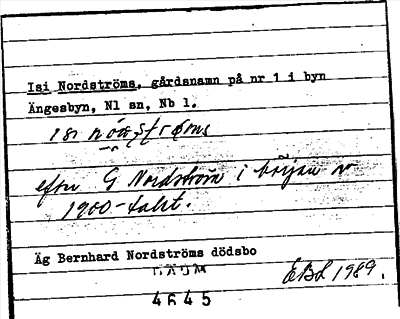 Isi Nordströms, gårdsnamn på nr 1 i byn
Ängesbyn, Nl sn, Nb l.
efter G Nordström i början av
1900-talet.
Äg Bernhard Nordströms dödsbo
EBL 1989.
4645